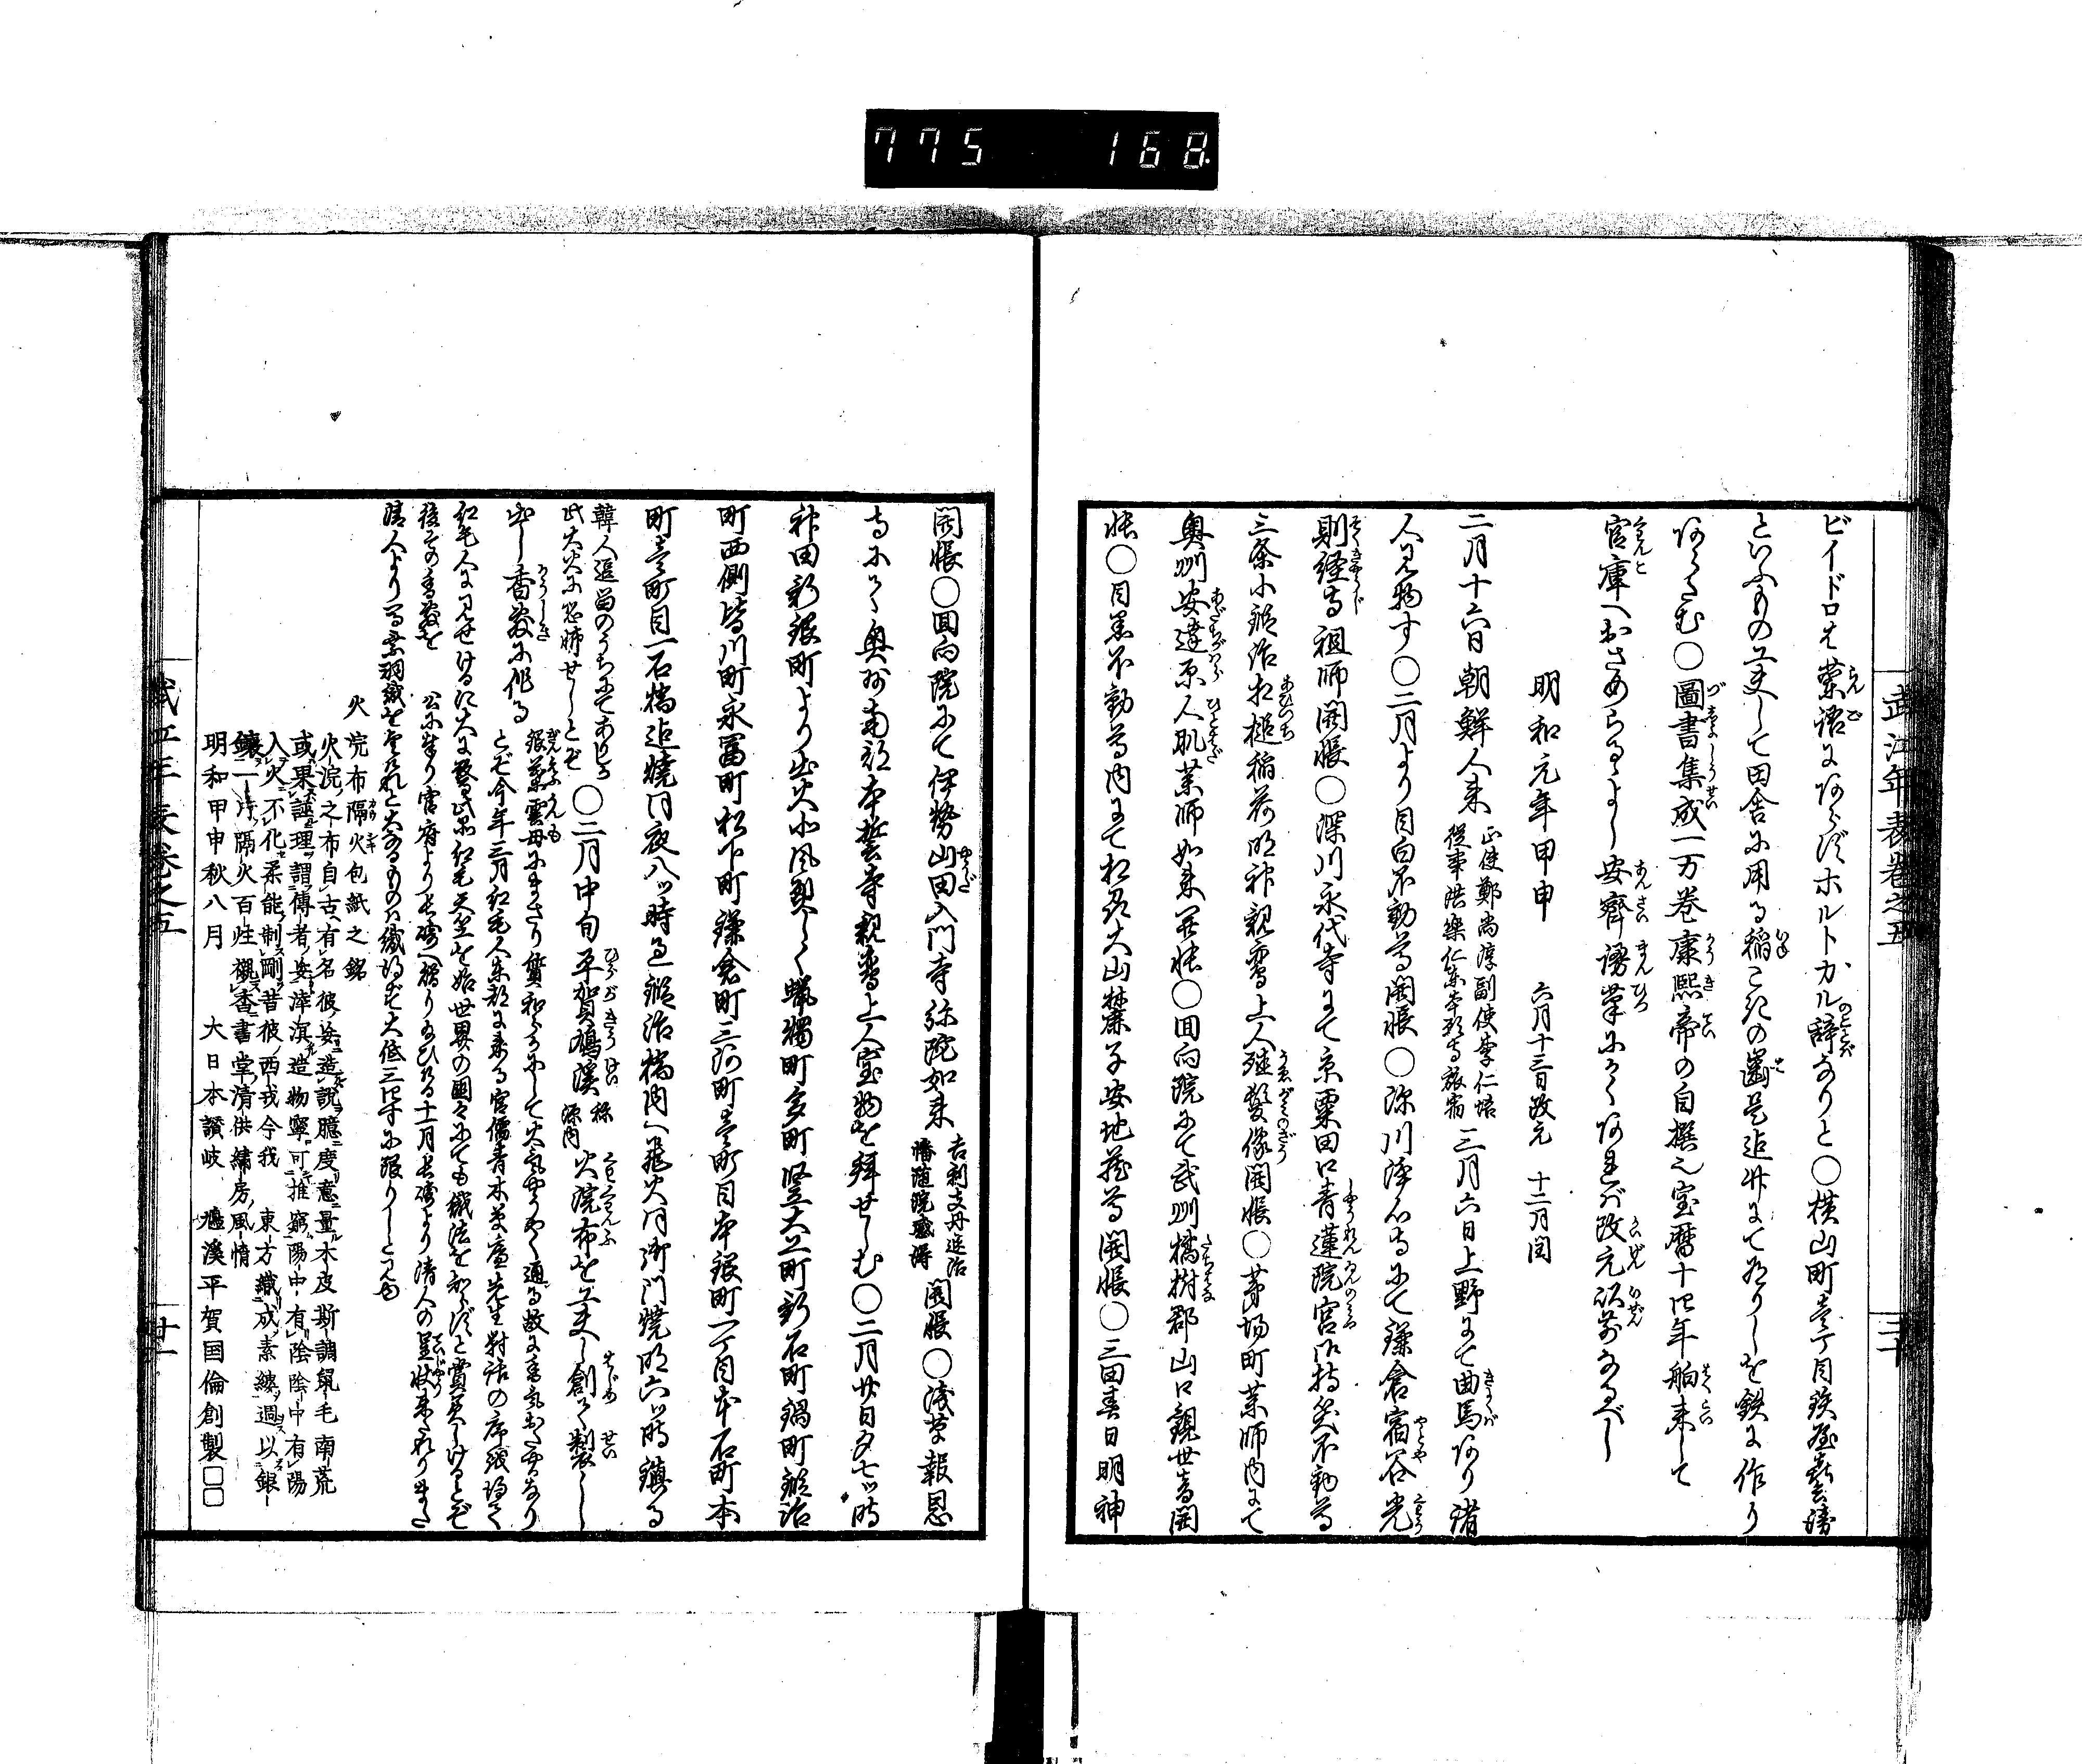 775 168
武江年表卷之五
三十
ビイドロは蛮語にあらずホルトカル辞なりと〇横山町壱丁目鉄屋喜兵衛
といふもの工夫して田舎に用る稲こきの歯是迄竹にて有りしを鉄に作り
あらたむ〇圖書集成一万卷康熙帝の自撰也宝暦十四年舶来して
官庫へおさめらるゝよし安齋漫筆にしるしあれバ改元以前なるべし
明和元年甲申 六月十三日改元 十二月閏
二月十六日朝鮮人来 正使鄭尚淳副使李仁培 従事洪樂仁東本願寺旅宿 三月六日上野にて曲馬あり諸
人見物す〇二月より目白不動尊開帳〇深川浄心寺にて鎌倉宿谷光
則経寺祖師開帳〇深川永代寺にて京粟田口青蓮院宮御持念不動尊
三条小鍛冶相槌稲荷明神親鸞上人植髪像開帳〇茅場町薬師内にて
奥州安達原人肌薬師如来開帳〇回向院にて武州橘樹郡山口観世音開
帳〇目黒不動尊内にて相州大山麓子安地蔵尊開帳〇三田春日明神
開帳〇回向院にて伊勢山田入門寺弥陀如来 吉利支丹退治 幡随院感得 開帳〇浅草報恩
寺にて奥州南部本誓寺親鸞上人宝物を拝せしむ〇二月廿日夕七ツ時
神田新銀町より出火北風烈しく蝋燭町多町竪大工町新石町鍋町鍛冶
町西側皆川町永冨町松下町鎌倉町三河町壱町目本銀町一丁目本石町本
町壱町目一石橋迄焼同夜八ツ時過鍛冶橋内へ飛火同御門焼明六ツ時鎮る
韓人逗留のうちにてありしが 此大火に恐怖せしとぞ 〇二月中旬平賀鳩溪 称 源内 火浣布を工夫し創て製し
出し香敷に作る 銀葉雲母にまさり質和らかにして火気やうやく通る故に香気おだやかなり
とぞ今年三月紅毛人東都に来る官儒青木文蔵先生対話の席彼得て
紅毛人に見せけるに大に驚此品紅毛天竺を始世界の国々にても織法を知らずと賞美しけるとぞ
後その香敷を 公に奉り官府より長崎へ贈り給ひける十一月長崎より清人の呈状来れりまた
清人より馬乗羽織を望けれど大なるものハ織得ず大低三四寸に限りしと見ゆ
火浣布隔火包紙之銘
火浣之布自古有名彼妄造説臆度意量木皮斯調鼠毛南荒
或果誣理謂傳者妄滓溟造物寧可推窮陽中有陰陰中有陽
入火不化柔能制剛昔彼西戎今我 東方織成素縷週以銀
鑲一片隔火百炷襯香書堂清供繡房風情
明和甲申秋八月 大日本讃岐 鳩溪平賀国倫創製□□
武江年表卷之五
廿一